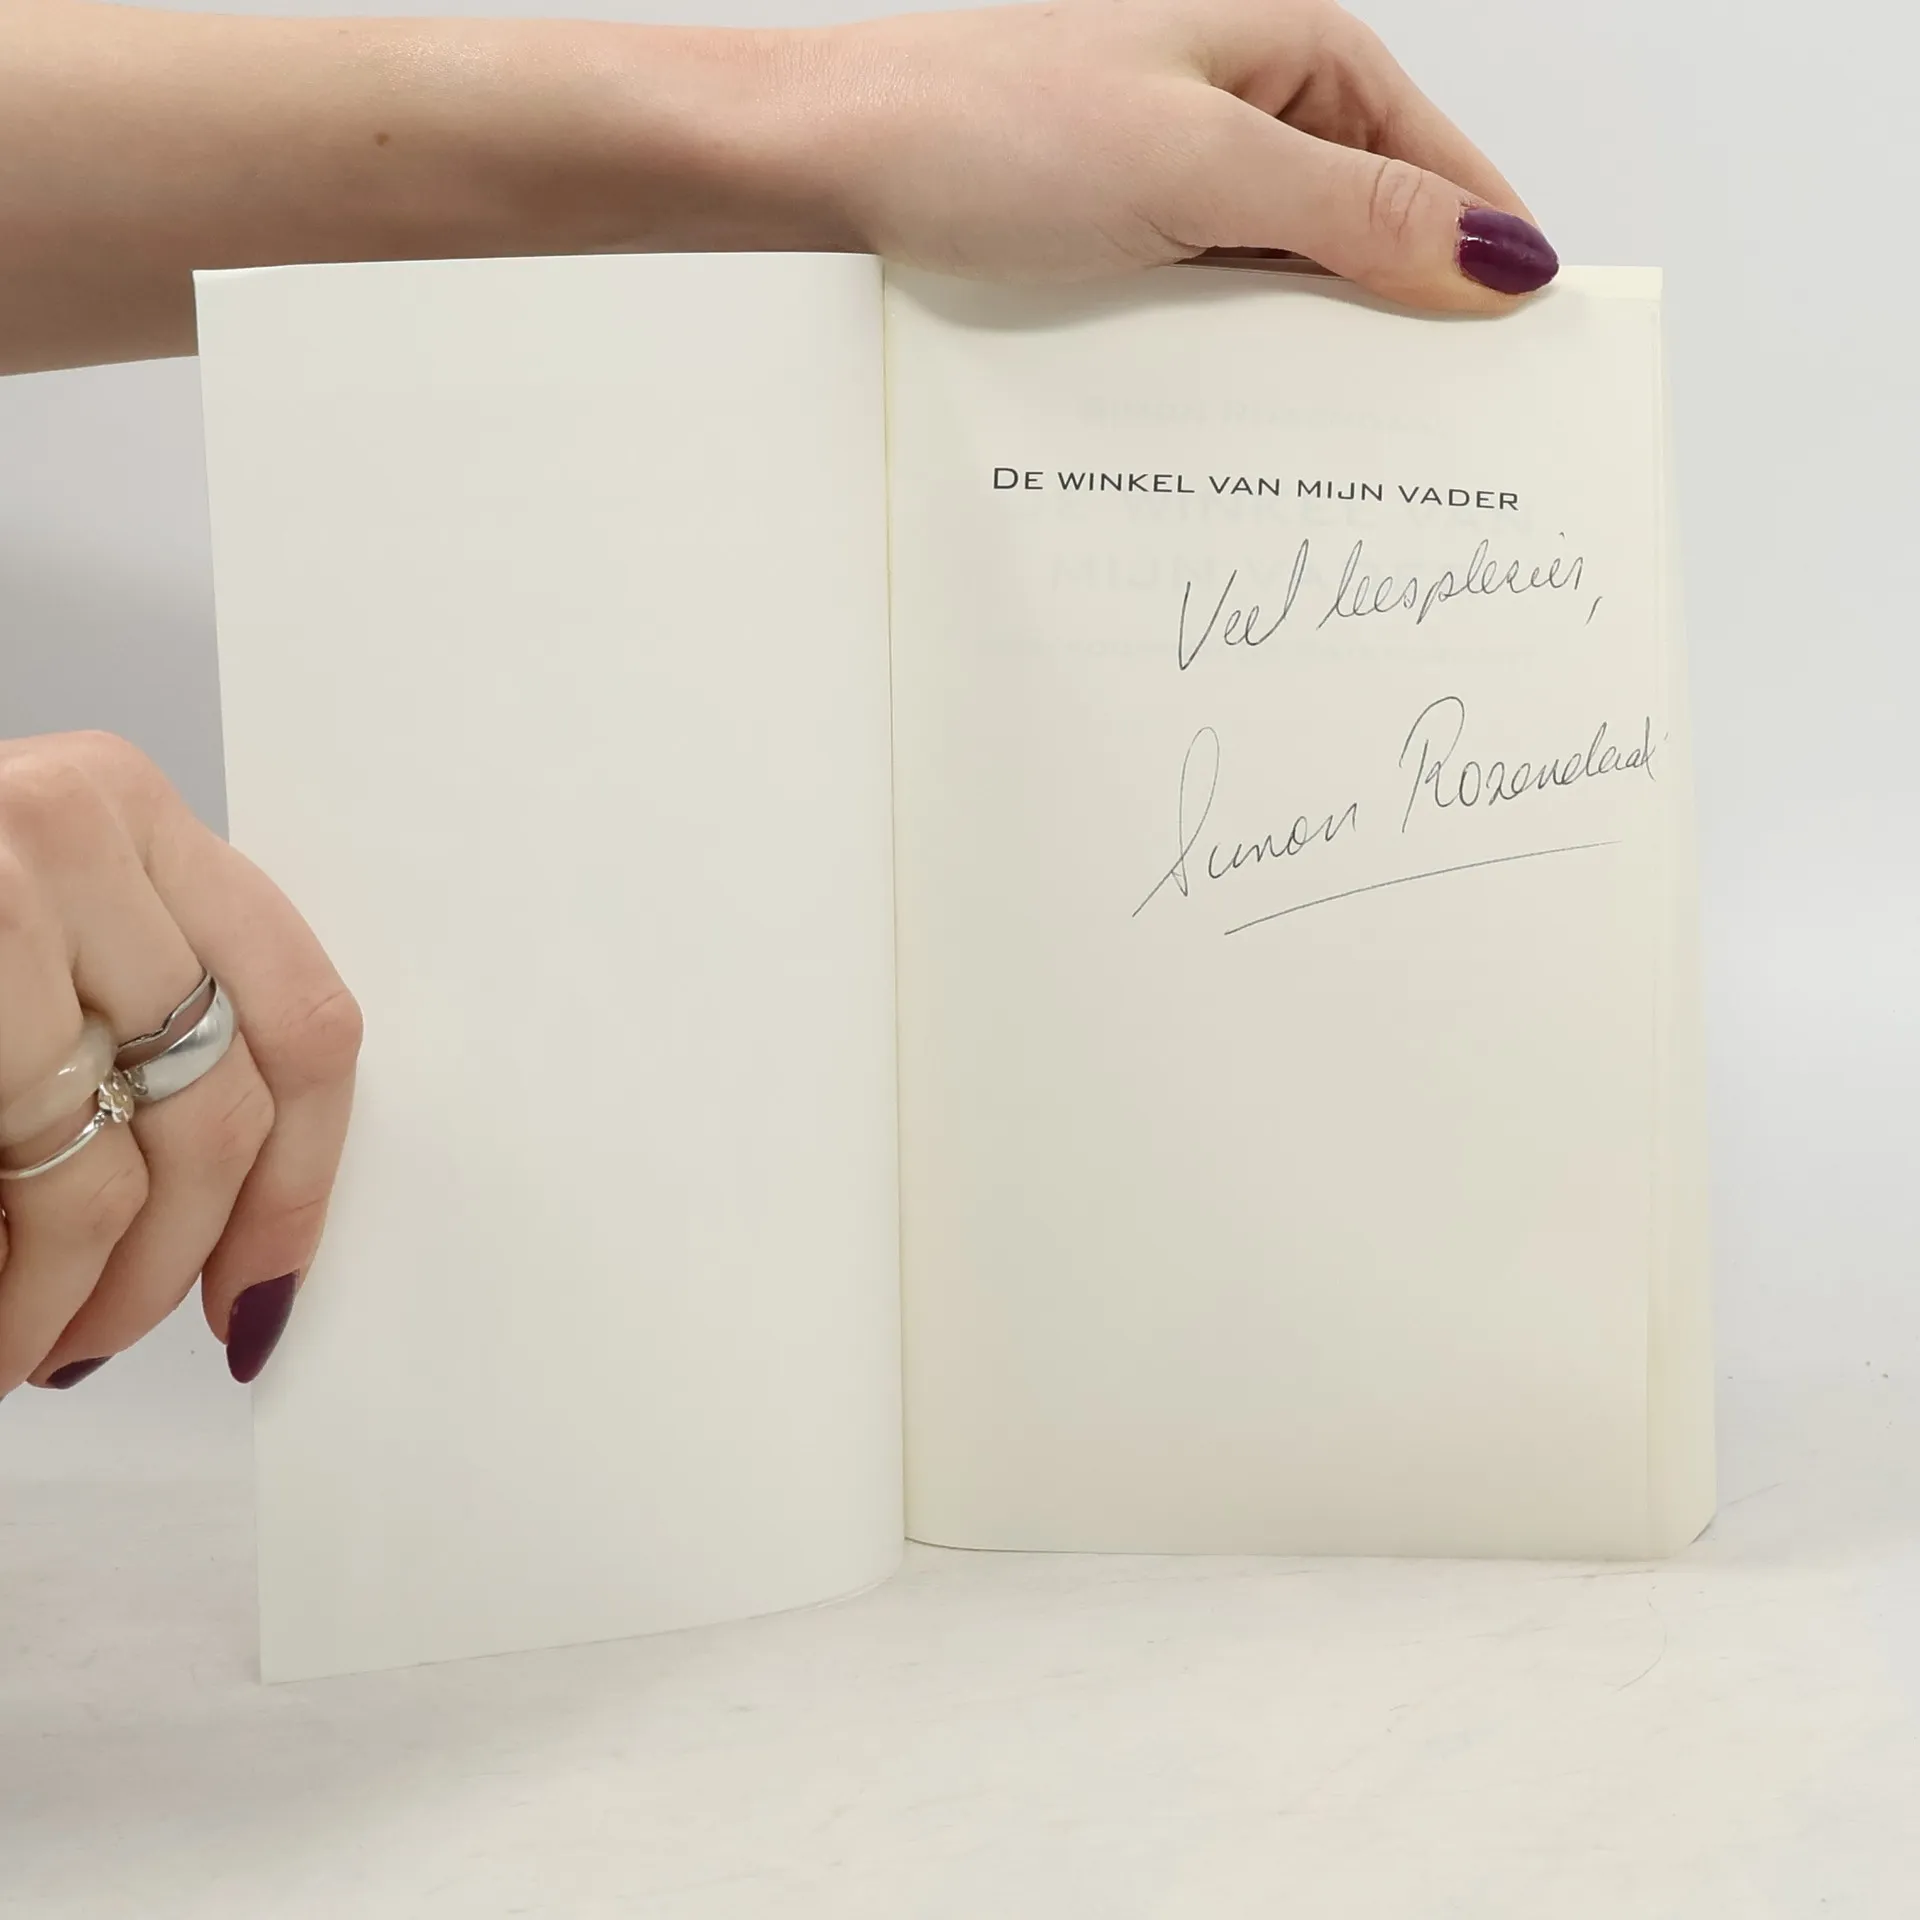 De winkel van mijn vader
Veel leesplezier,
Simon Rozendaal